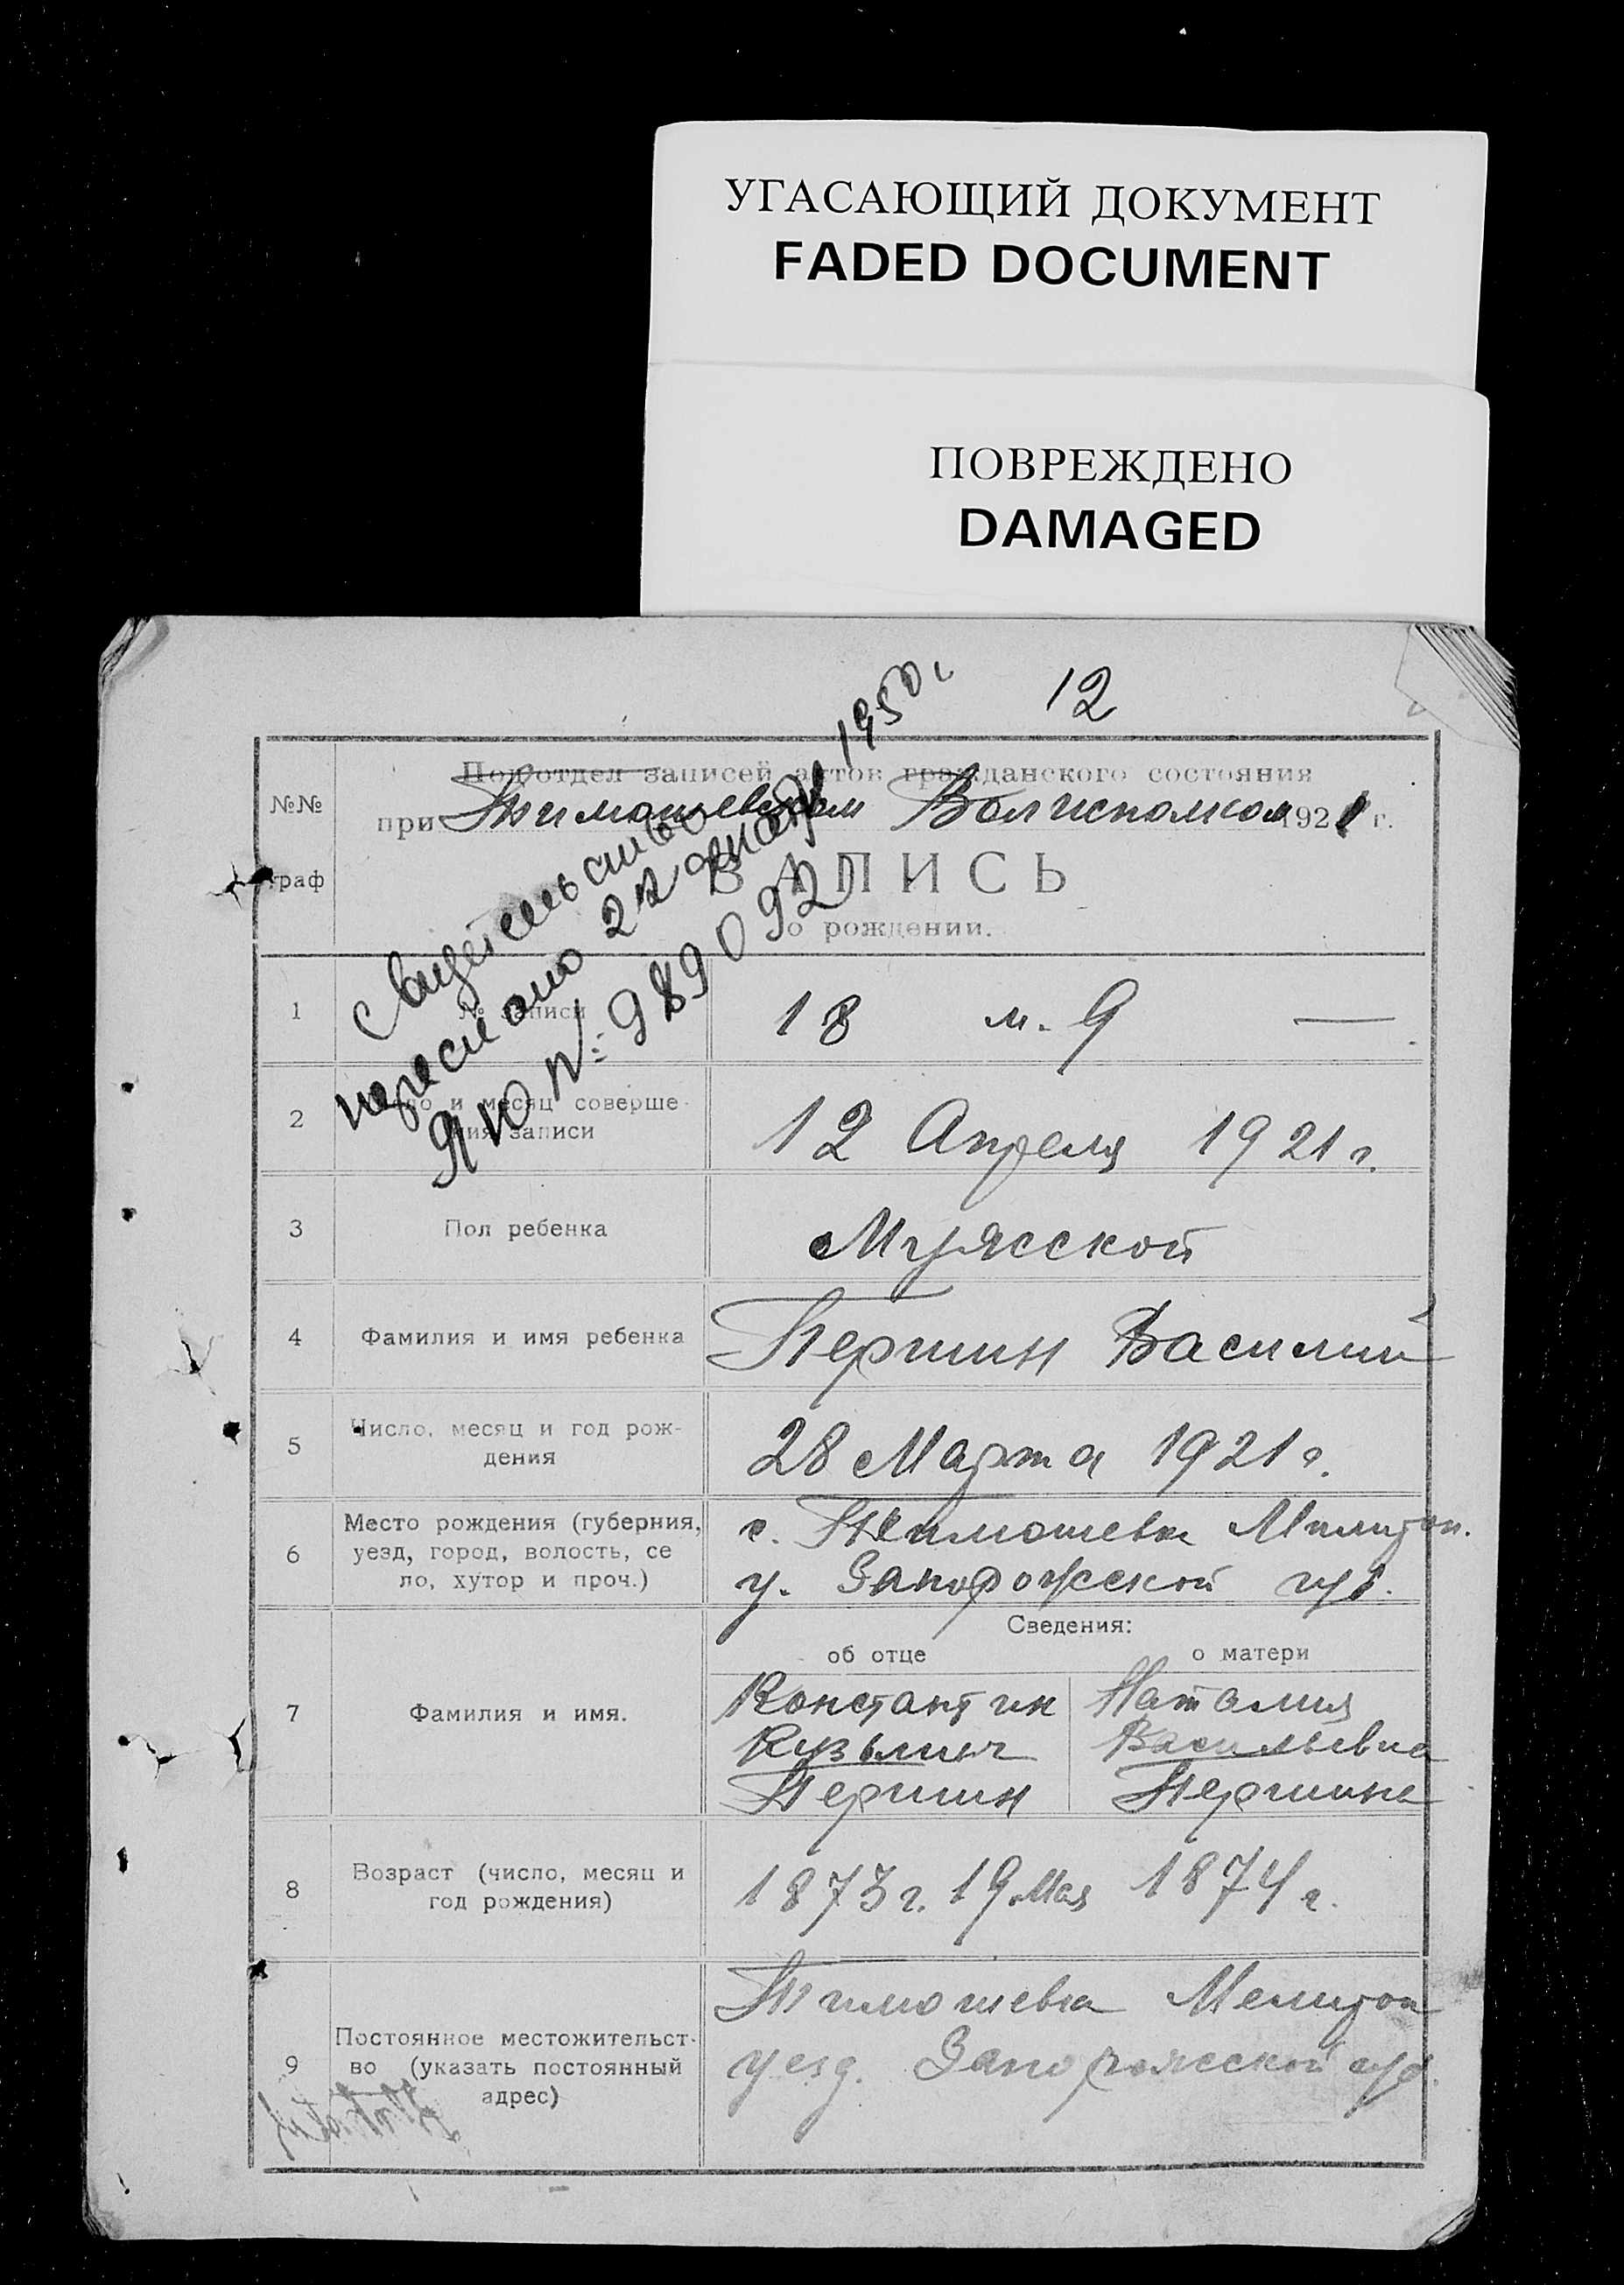 УГАСАЮЩИЙ ДОКУМЕНТ
FADED DOCUMENT
ПОВРЕЖДЕНО
DAMAGED
12
№№
граф
Подотдел записей актов гражданского состояния
при Тимошевском Волисполком 1921 г.
ЗАПИСЬ
о рождении.
Свидетельство
переслано 22 1950 г
ЯЮ №: 989092
1 № записи 18 м. 9 —
2 Число и месяц соверше-
ния записи
12 Апреля 1921 г.
3 Пол ребенка Мужеской
4 Фамилия и имя ребенка Першин Василий
5 Число, месяц и год рож-
дения
28 Марта 1921 г.
6 Место рождения (губерния,
уезд, город, волость, се
ло, хутор и проч.)
с. Тимошевка Мелитоп.
у. Запорожской губ.
Сведения:
об отце о матери
7 Фамилия и имя.
Константин Наталия
Кузьмич Васильевна
Першин Першина
8 Возраст (число, месяц и
год рождения)
1873 г. 19 Мая 1874 г.
9 Постоянное местожительст-
во (указать постоянный
адрес)
Тимошевка Мелитоп
уезд. Запорожской губ.